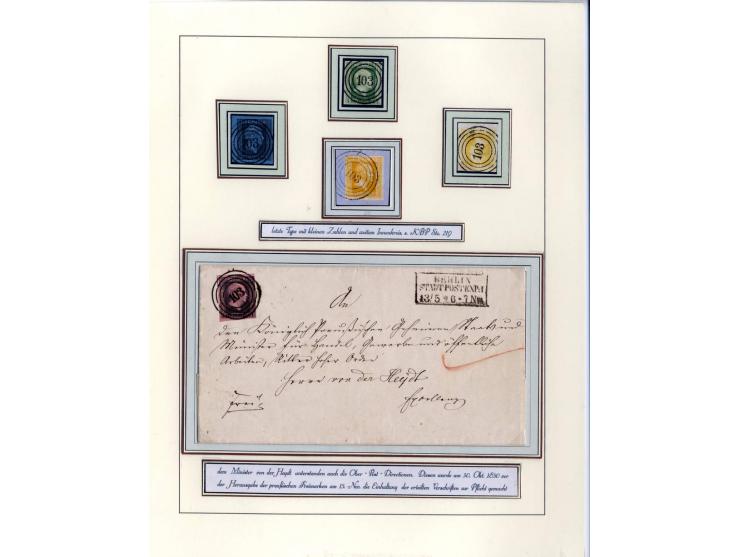 103
103
103
103
letzte Type mit kleinen Zahlen und weitem Innenkreis, s. KBP Stc. 219
103
BERLIN
STADTPOSTEXP. I
13/5 * 6-7 Nm
An
den Königlich Preußischen Geheimen Staats und
Minister für Handel, Gewerbe und öffentliche
Arbeiten, Ritter hoher Orden
Herrn von der Heydt
frei
Excellenz
dem Minister von der Heydt unterstanden auch die Ober-Post-Directionen. Diesen wurde am 30. Okt. 1850 vor
der Herausgabe der preußischen Freimarken am 15. Nov. die Einhaltung der erteilten Vorschriften zur Pflicht gemacht